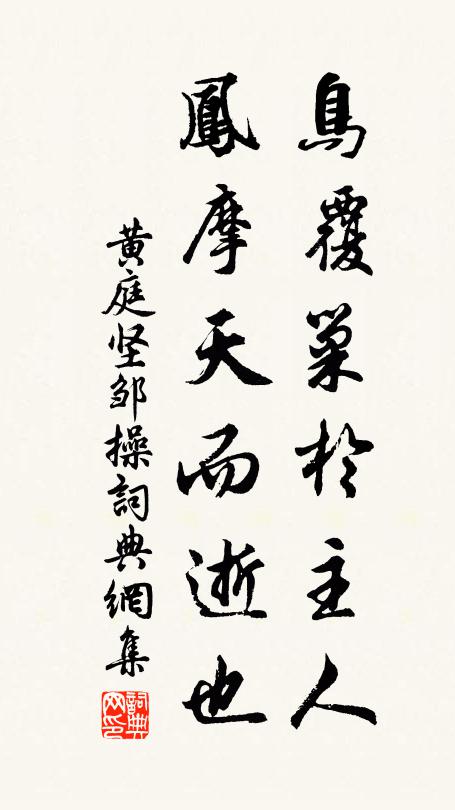 鳥覆巢於主人
鳳摩天而逝也
黄庭坚邹操詞典網集
詞典网印